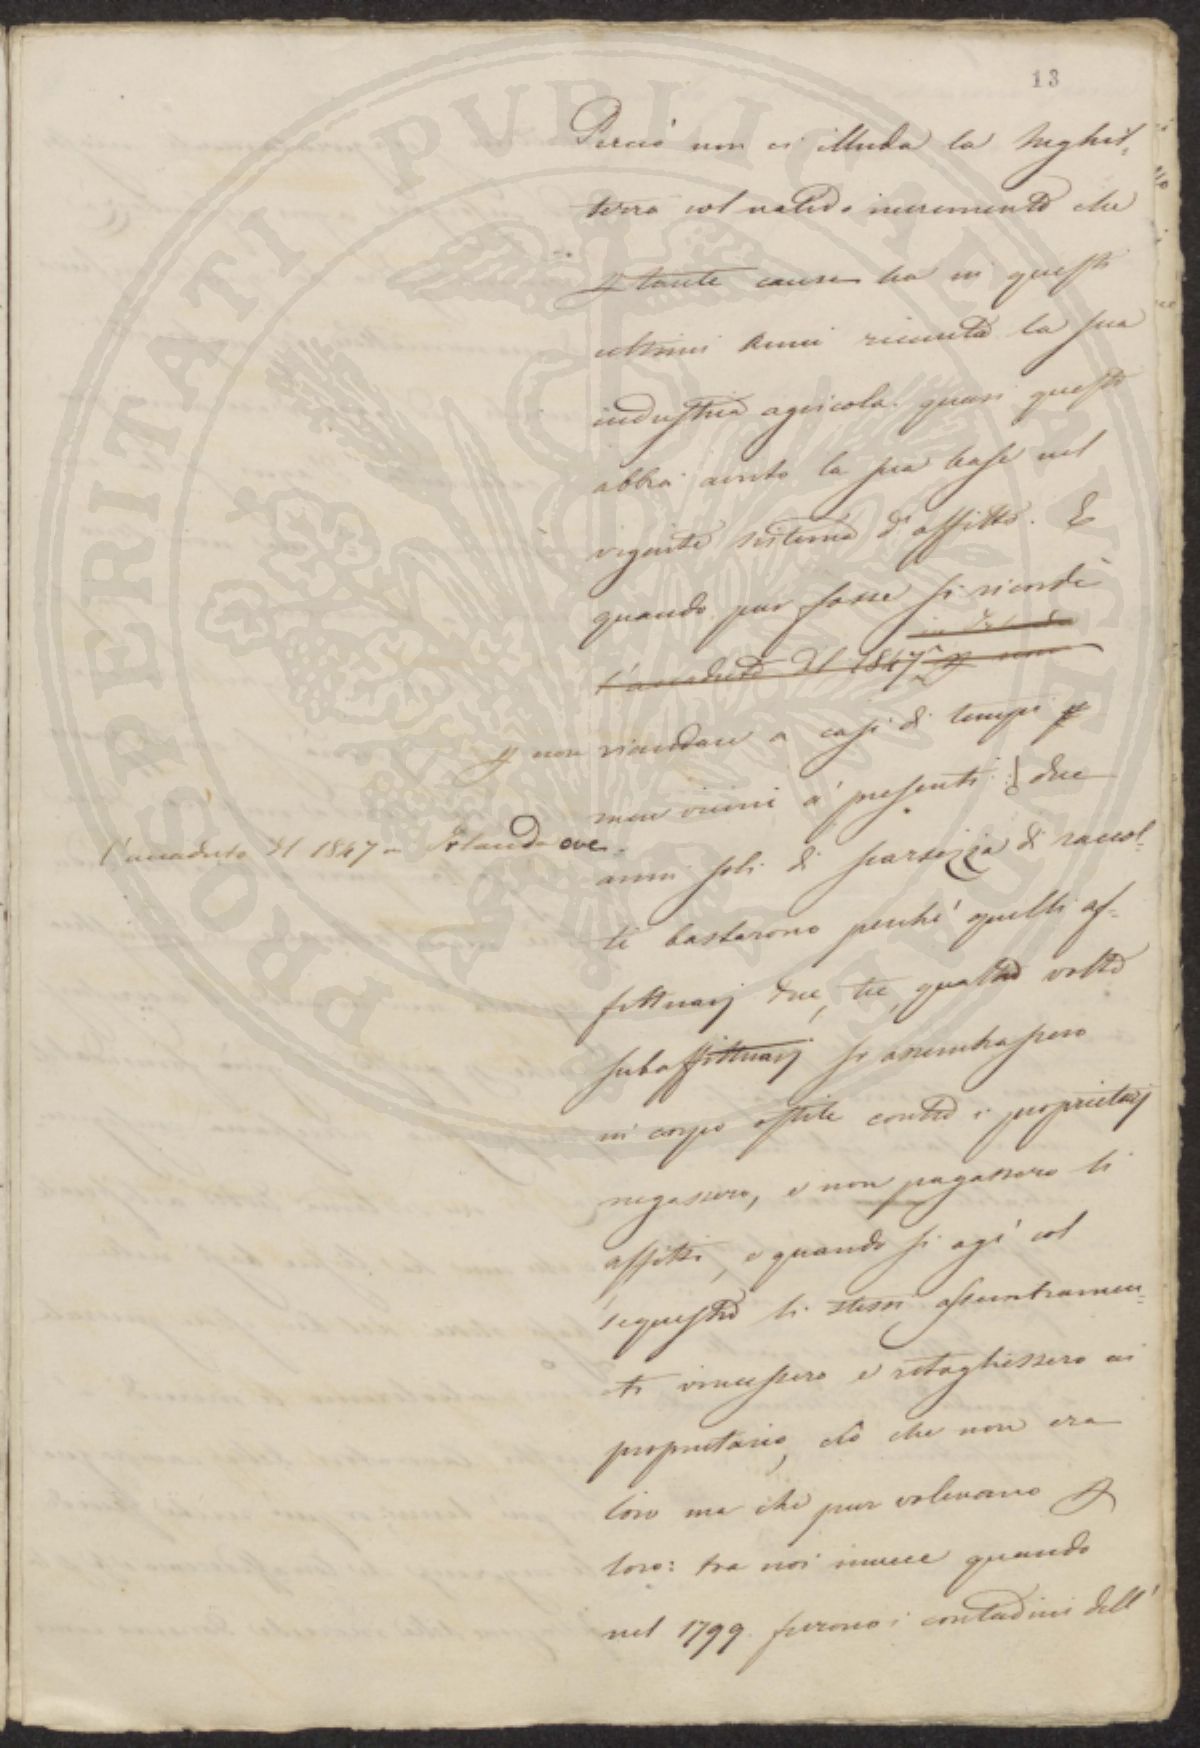 13
Perciò non ci illuda la Inghil-
terra col valido incremento che
p tante cause ha in questi
ultimi anni ricevuto la sua
industria agricola. quasi questo
abbia avuto la sua base nel
vigente sistema d'affitto. E
quando pur fosse si ricordi
in Irlanda
l'accaduto del 1847 p non
p non riandare a casi di tempi p
men vicini a' presenti due
l'accaduto del 1847 in Irlanda ove
anni soli di scarsezza di raccol-
ti bastarono perché quelli af-
fittuarj due, tre, quattro volte
subaffittuarj si assembrassero
in corpo ostile contro i proprietarj
negassero, e non pagassero li
affitti, e quando si agì col
sequestro li stessi assembramen-
ti vincessero e ritogliessero ai
proprietario, ciò che non era
loro ma che pur volevano p
loro: tra noi invece quando
nel 1799 furono i contadini dell'
PROSPERITATI PUBLICAE AUGENDAE